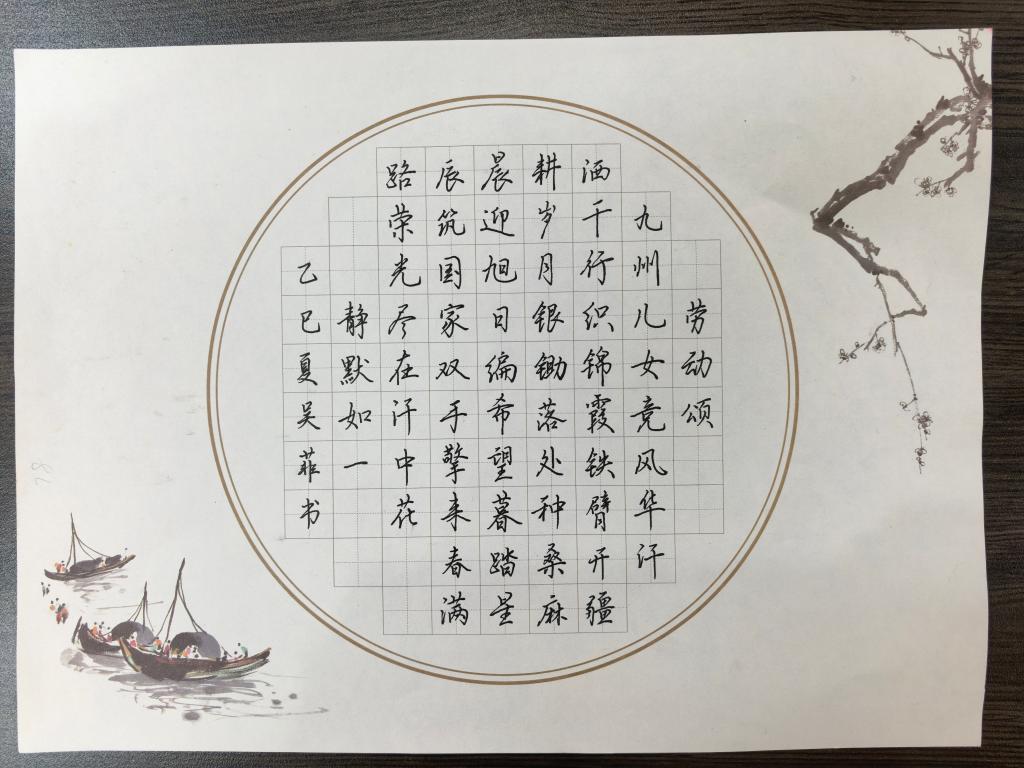 劳动颂
九州儿女竞风华汗
洒千行织锦霞铁臂开疆
耕岁月银锄落处种桑麻
晨迎旭日编希望暮踏星
辰筑国家双手擎来春满
路荣光尽在汗中花
静默如一
乙巳夏吴菲书
78